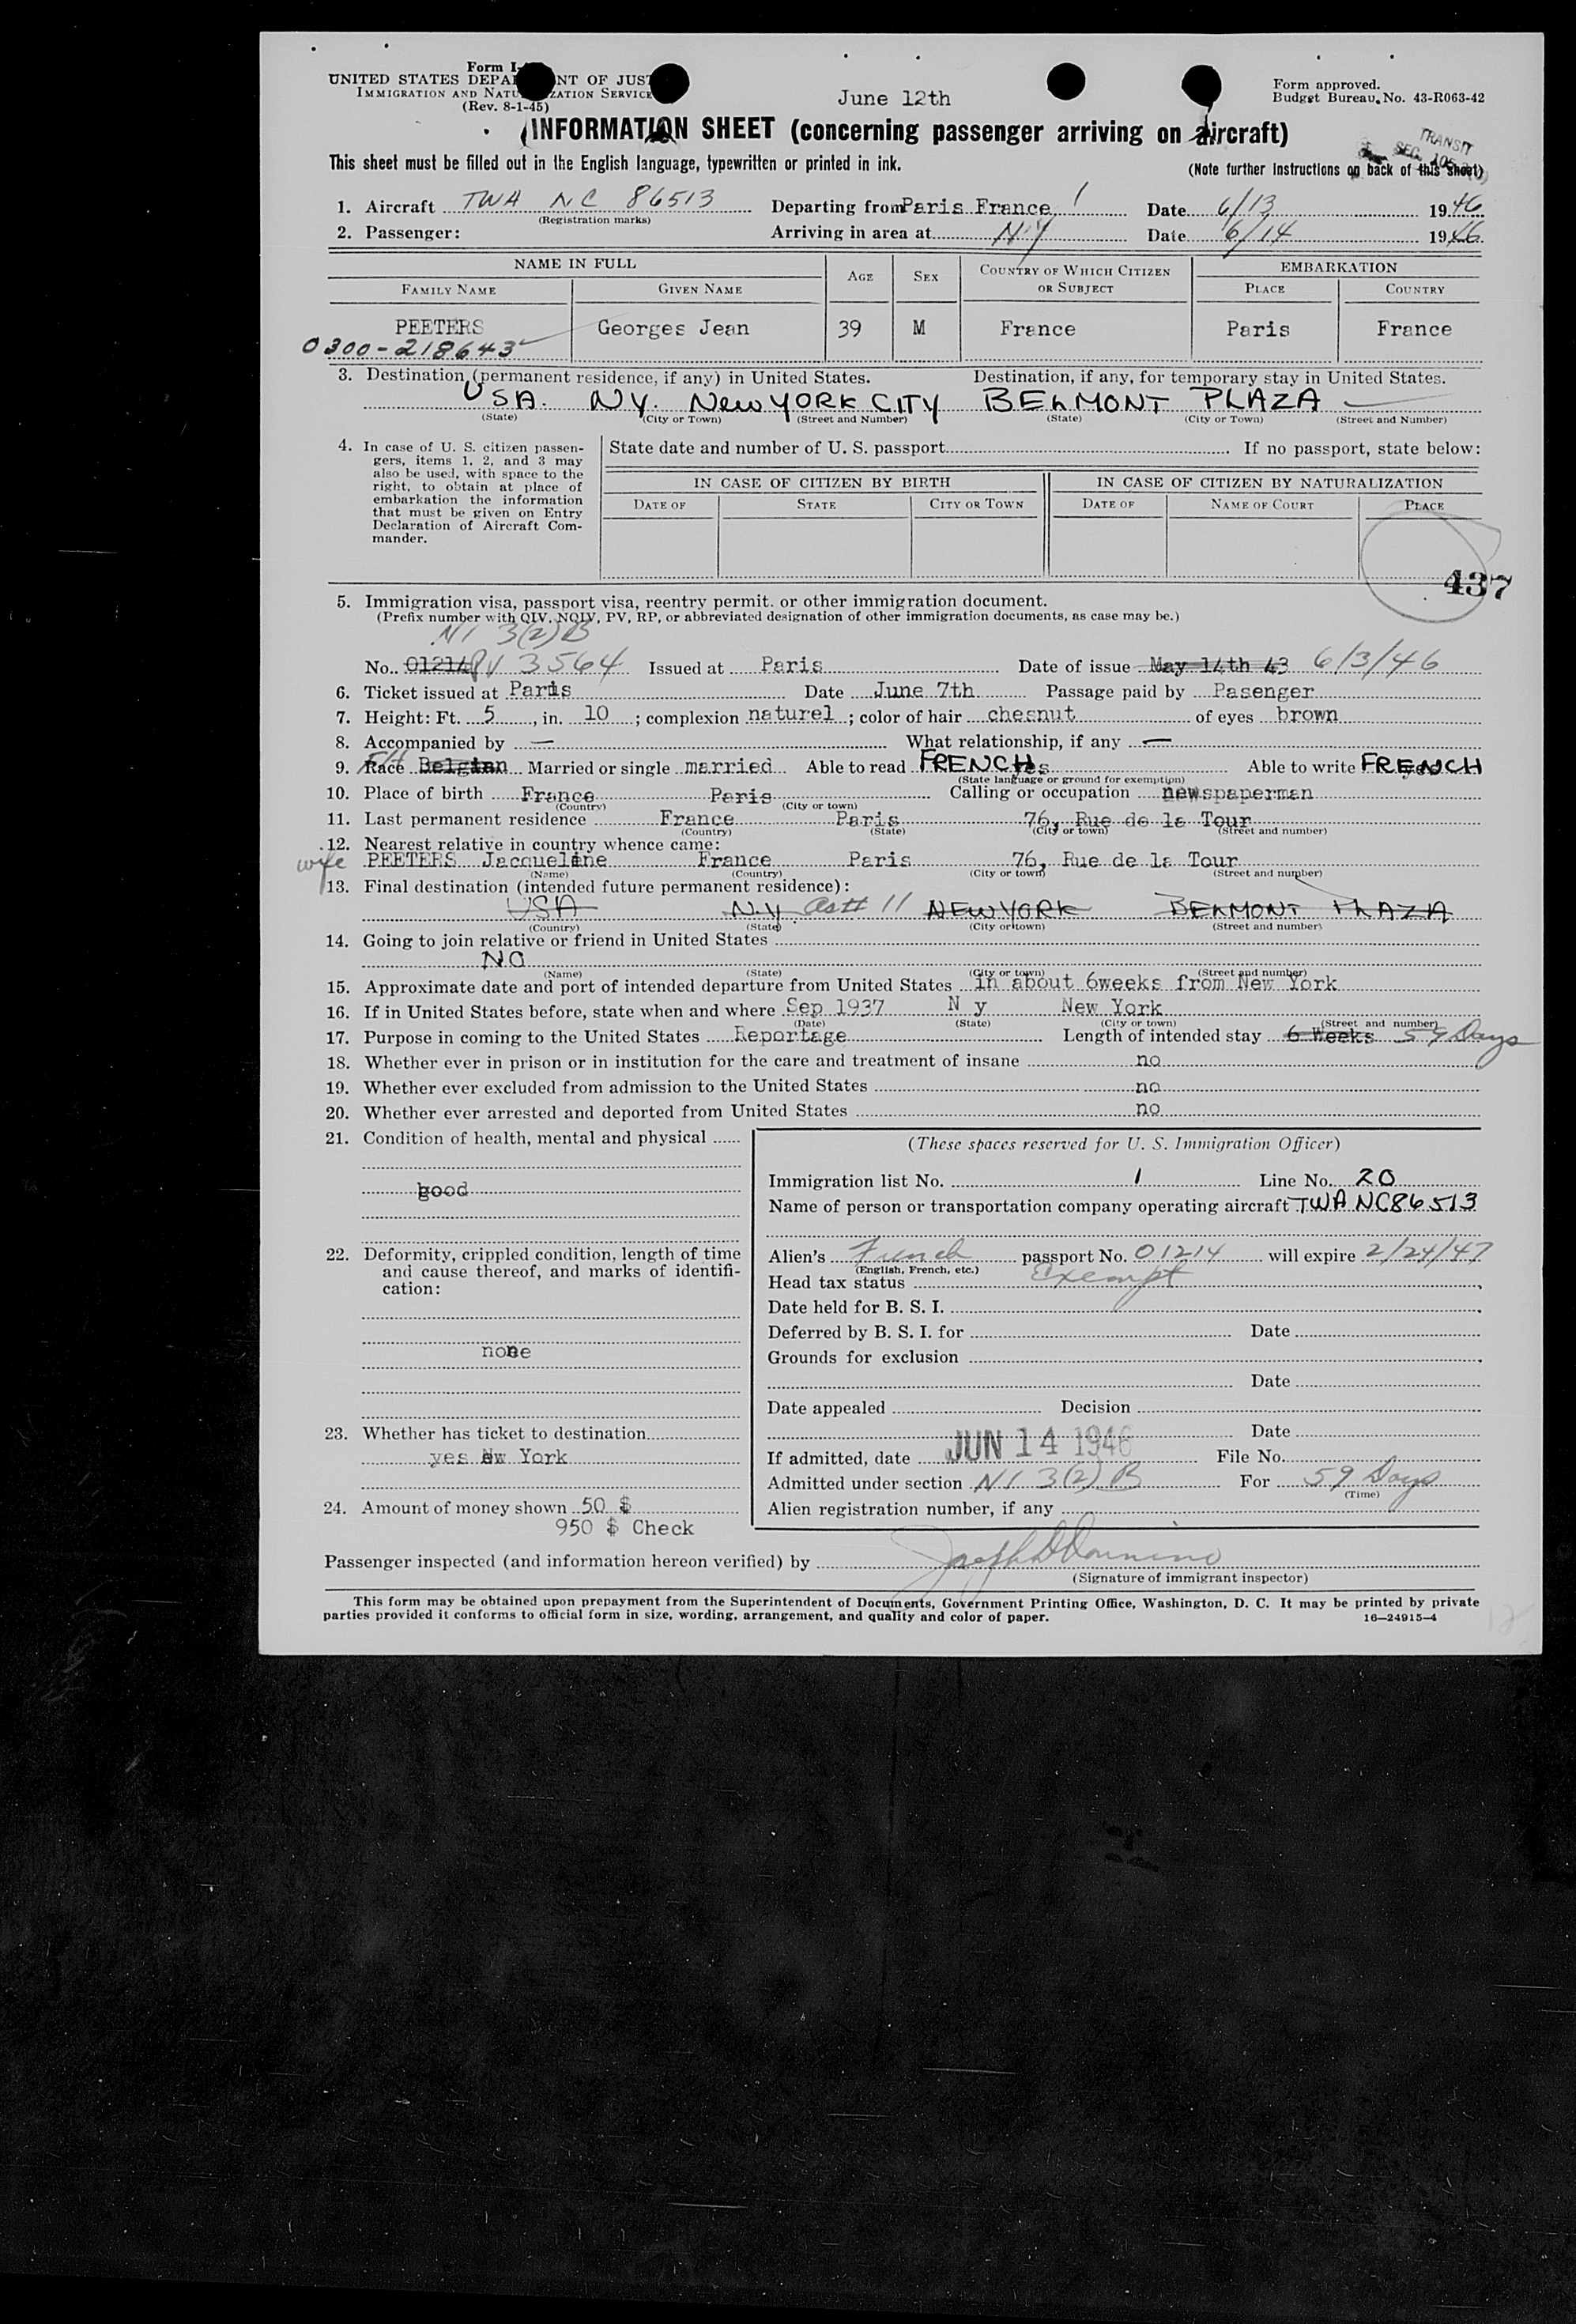 Form I-
UNITED STATES DEPA NT OF JUST
IMMIGRATION AND NATU ZATION SERVICE
(Rev. 8-1-45)
June 12th
Form approved.
Budget Bureau No. 43-R063-42
INFORMATION SHEET (concerning passenger arriving on aircraft)
TRANSIT
SEC.
This sheet must be filled out in the English language, typewritten or printed in ink.
(Note further instructions on back of this sheet)
1. Aircraft TWA NC 86513 Departing from Paris France 1 Date 6/13 1946
(Registration marks)
2. Passenger: Arriving in area at N.Y Date 6/14 1946
NAME IN FULL AGE SEX COUNTRY OF WHICH CITIZEN OR SUBJECT EMBARKATION
FAMILY NAME GIVEN NAME PLACE COUNTRY
PEETERS Georges Jean 39 M France Paris France
0300-218643
3. Destination (permanent residence, if any) in United States. Destination, if any, for temporary stay in United States.
USA. NY. New YORK CITY BELMONT PLAZA
(State) (City or Town) (Street and Number) (State) (City or Town) (Street and Number)
4. In case of U. S. citizen passengers, items 1, 2, and 3 may also be used, with space to the right, to obtain at place of embarkation the information that must be given on Entry Declaration of Aircraft Commander.
State date and number of U. S. passport If no passport, state below:
IN CASE OF CITIZEN BY BIRTH IN CASE OF CITIZEN BY NATURALIZATION
DATE OF STATE CITY OR TOWN DATE OF NAME OF COURT PLACE
437
5. Immigration visa, passport visa, reentry permit, or other immigration document.
(Prefix number with QIV, NQIV, PV, RP, or abbreviated designation of other immigration documents, as case may be.)
NI 3(2)B
No. 01214 PV 3564 Issued at Paris Date of issue May 14th 43 6/3/46
6. Ticket issued at Paris Date June 7th Passage paid by Pasenger
7. Height: Ft. 5, in. 10; complexion naturel; color of hair chesnut of eyes brown
8. Accompanied by — What relationship, if any —
9. Race Belgian Married or single married Able to read FRENCH yes Able to write FRENCH
(State language or ground for exemption)
10. Place of birth France Paris Calling or occupation newspaperman
(Country) (City or town)
11. Last permanent residence France Paris 76, Rue de la Tour
(Country) (State) (City or town) (Street and number)
12. Nearest relative in country whence came:
wife PEETERS Jacqueline France Paris 76, Rue de la Tour
(Name) (Country) (City or town) (Street and number)
13. Final destination (intended future permanent residence):
USA N.Y 11 NEW YORK BELMONT PLAZA
(Country) (State) (City or town) (Street and number)
14. Going to join relative or friend in United States
NO
(Name) (State) (City or town) (Street and number)
15. Approximate date and port of intended departure from United States in about 6weeks from New York
16. If in United States before, state when and where Sep 1937 N y New York
(Date) (State) (City or town) (Street and number)
17. Purpose in coming to the United States Reportage Length of intended stay 6 Weeks 59 Days
18. Whether ever in prison or in institution for the care and treatment of insane no
19. Whether ever excluded from admission to the United States no
20. Whether ever arrested and deported from United States no
21. Condition of health, mental and physical
good
22. Deformity, crippled condition, length of time and cause thereof, and marks of identification:
none
23. Whether has ticket to destination
yes New York
24. Amount of money shown 50 $
950 $ Check
(These spaces reserved for U. S. Immigration Officer)
Immigration list No. 1 Line No. 20
Name of person or transportation company operating aircraft TWA NC86513
Alien's French passport No. 01214 will expire 2/24/47
(English, French, etc.)
Head tax status Exempt
Date held for B. S. I.
Deferred by B. S. I. for Date
Grounds for exclusion
Date
Date appealed Decision
Date
If admitted, date JUN 14 1946 File No.
Admitted under section NI 3(2) B For 59 Days
(Time)
Alien registration number, if any
Passenger inspected (and information hereon verified) by
(Signature of immigrant inspector)
This form may be obtained upon prepayment from the Superintendent of Documents, Government Printing Office, Washington, D. C. It may be printed by private
parties provided it conforms to official form in size, wording, arrangement, and quality and color of paper. 16—24915-4